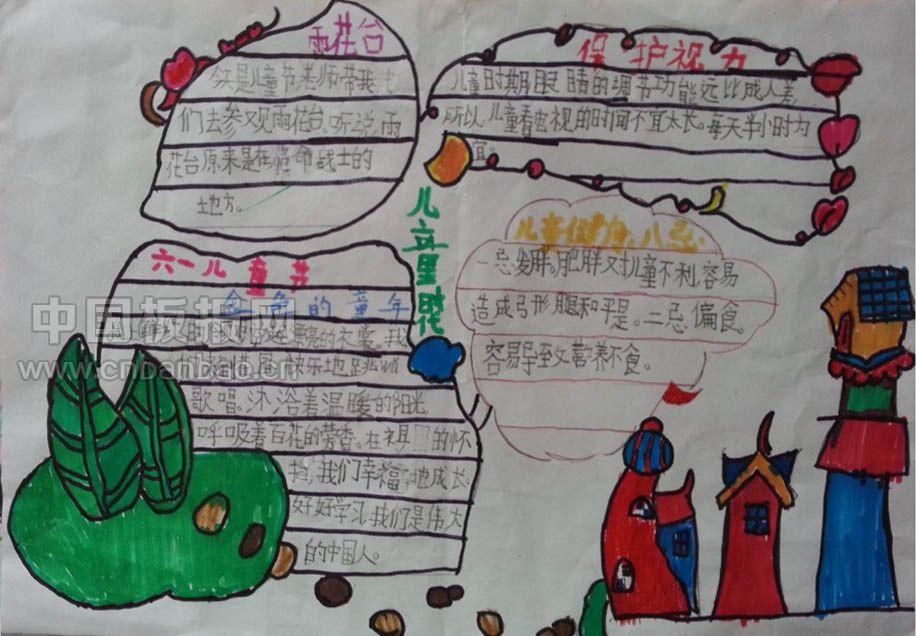 雨花台
今天是儿童节老师带我
们去参观雨花台。听说,雨
花台原来是在革命战士的
地方。
保护视力
儿童时期眼睛的调节功能远比成人差
所以儿童看电视的时间不宜太长。每天半小时为
宜。
儿童健身八忌
一忌发胖。肥胖对儿童不利容易
造成弓形腿和平足。二忌偏食。
容易导至文营养不食。
儿立里时花
六一儿童节
金色的童年
漂亮的衣裳。我
快乐地跳
歌唱。沐浴着温暖的阳光
呼吸着百花的芳香。在祖国的怀
抱,我们幸福地成长。
好好学习我们是伟大
自的中国人。
中国板报网
www.cnbanbao.cn